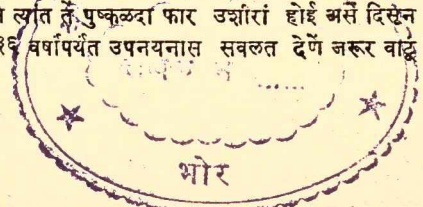 त्यांत तें पुष्कळदा फार उशीरां होई असें दिसून
वर्षांपर्यंत उपनयनास सवलत देणें जरूर वाटूं
भोर